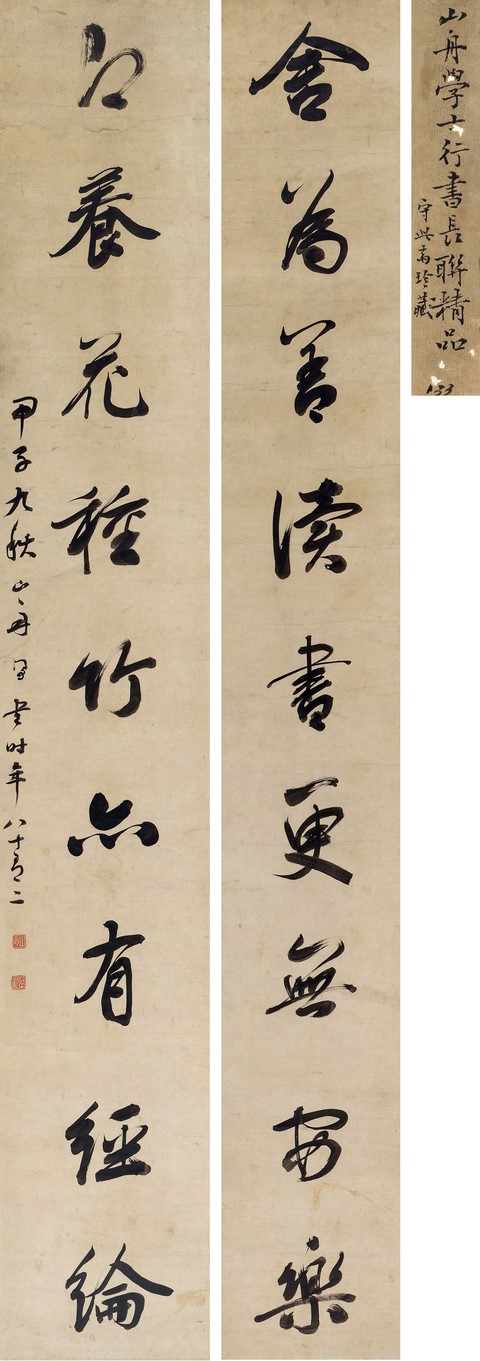 山舟學士行書長聯精品
守此斋珍藏
舍為善讀書更無安樂
即養花種竹亦有經綸
甲子九秋山舟同書时年八十有二